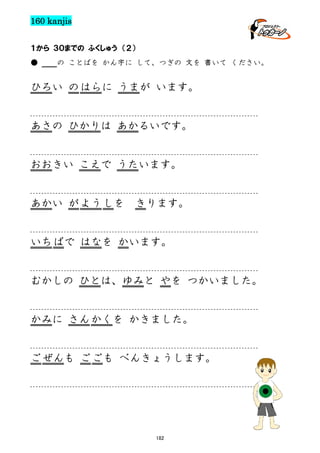 160 kanjis
プロジェクター
1から 30までの ふくしゅう (2)
● ___の ことばを かん字に して、つぎの 文を 書いて ください。
ひろい のはらに うまが います。
あさの ひかりは あかるいです。
おおきい こえで うたいます。
あかい がようしを きります。
いちばで はなを かいます。
むかしの ひとは、ゆみと やを つかいました。
かみに さんかくを かきました。
ごぜんも ごごも べんきょうします。
182